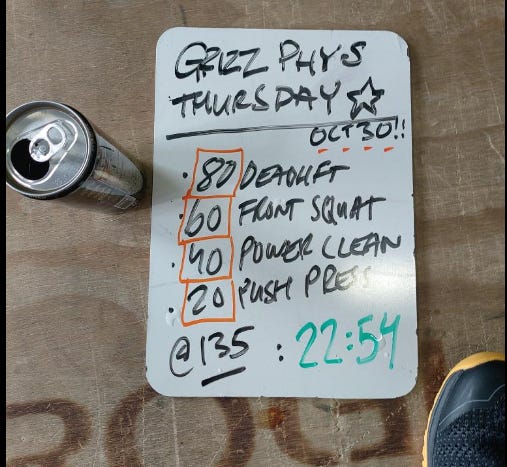 GRIZZ PHYS
THURSDAY ☆
OCT 30!!
• 80 DEADLIFT
• 60 FRONT SQUAT
• 40 POWER CLEAN
• 20 PUSH PRESS
@135 : 22:54